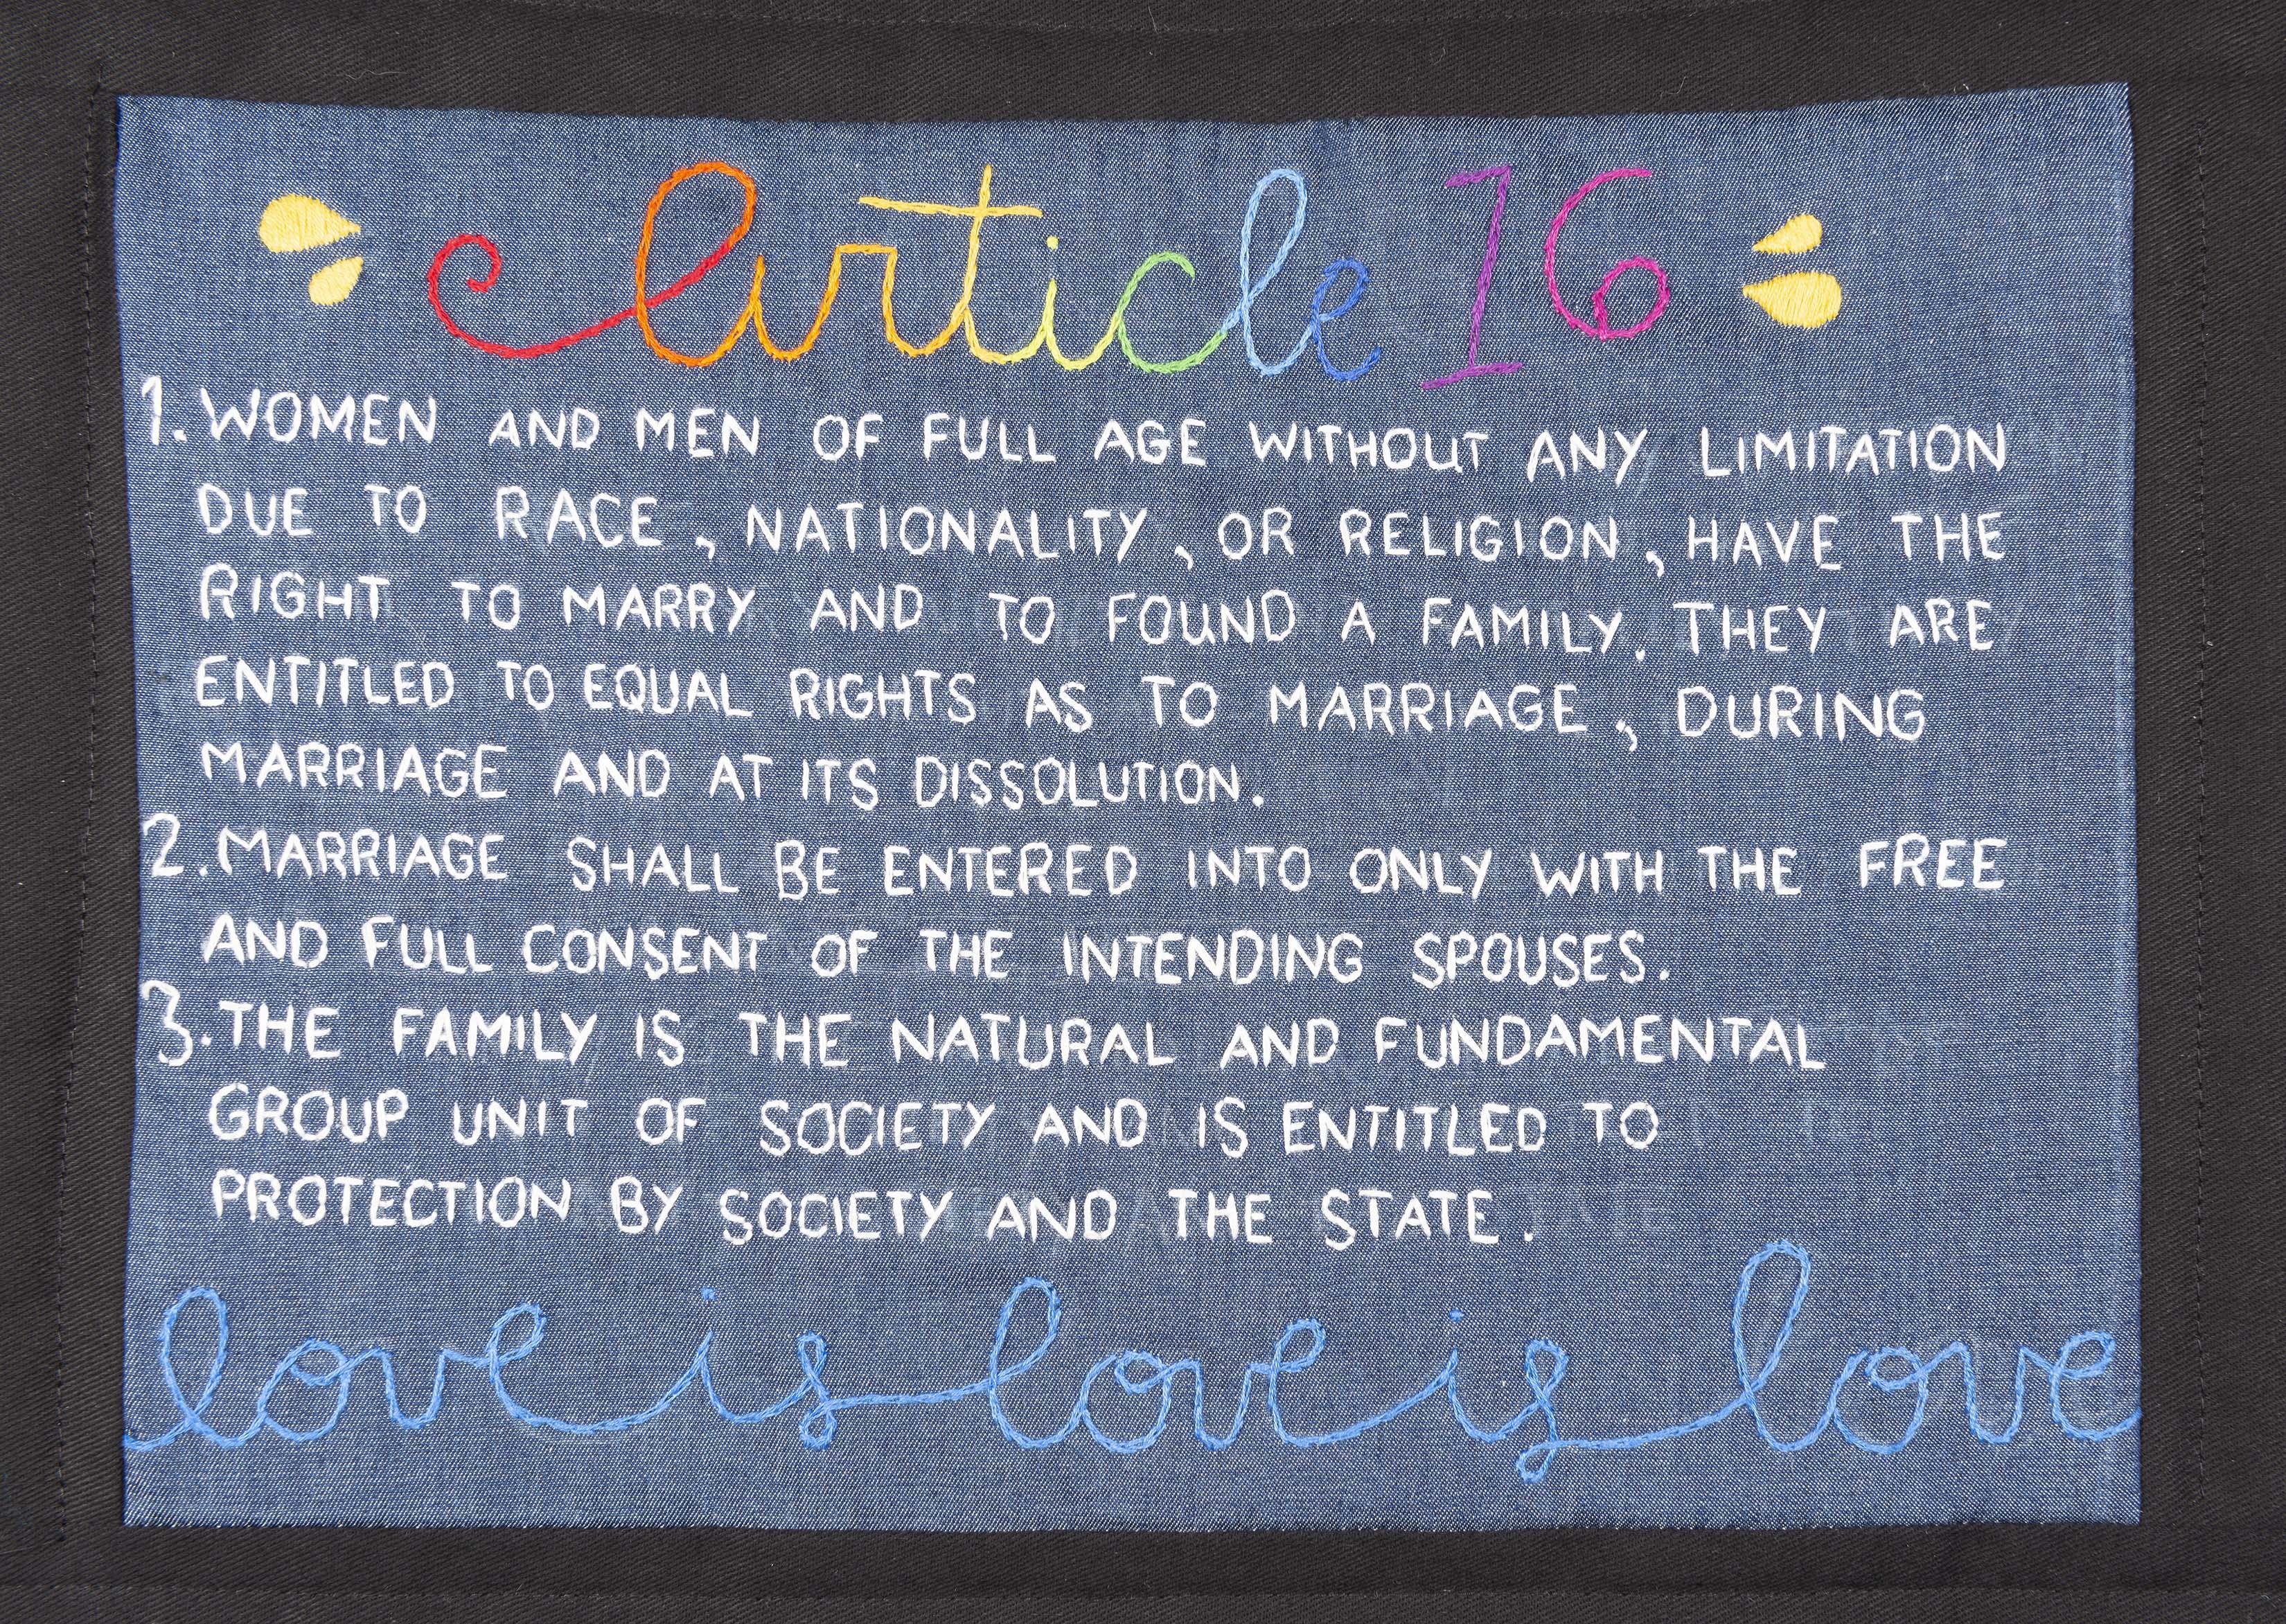 Article 16
1. WOMEN AND MEN OF FULL AGE WITHOUT ANY LIMITATION
DUE TO RACE, NATIONALITY, OR RELIGION, HAVE THE
RIGHT TO MARRY AND TO FOUND A FAMILY. THEY ARE
ENTITLED TO EQUAL RIGHTS AS TO MARRIAGE, DURING
MARRIAGE AND AT ITS DISSOLUTION.
2. MARRIAGE SHALL BE ENTERED INTO ONLY WITH THE FREE
AND FULL CONSENT OF THE INTENDING SPOUSES.
3. THE FAMILY IS THE NATURAL AND FUNDAMENTAL
GROUP UNIT OF SOCIETY AND IS ENTITLED TO
PROTECTION BY SOCIETY AND THE STATE.
love is love is love